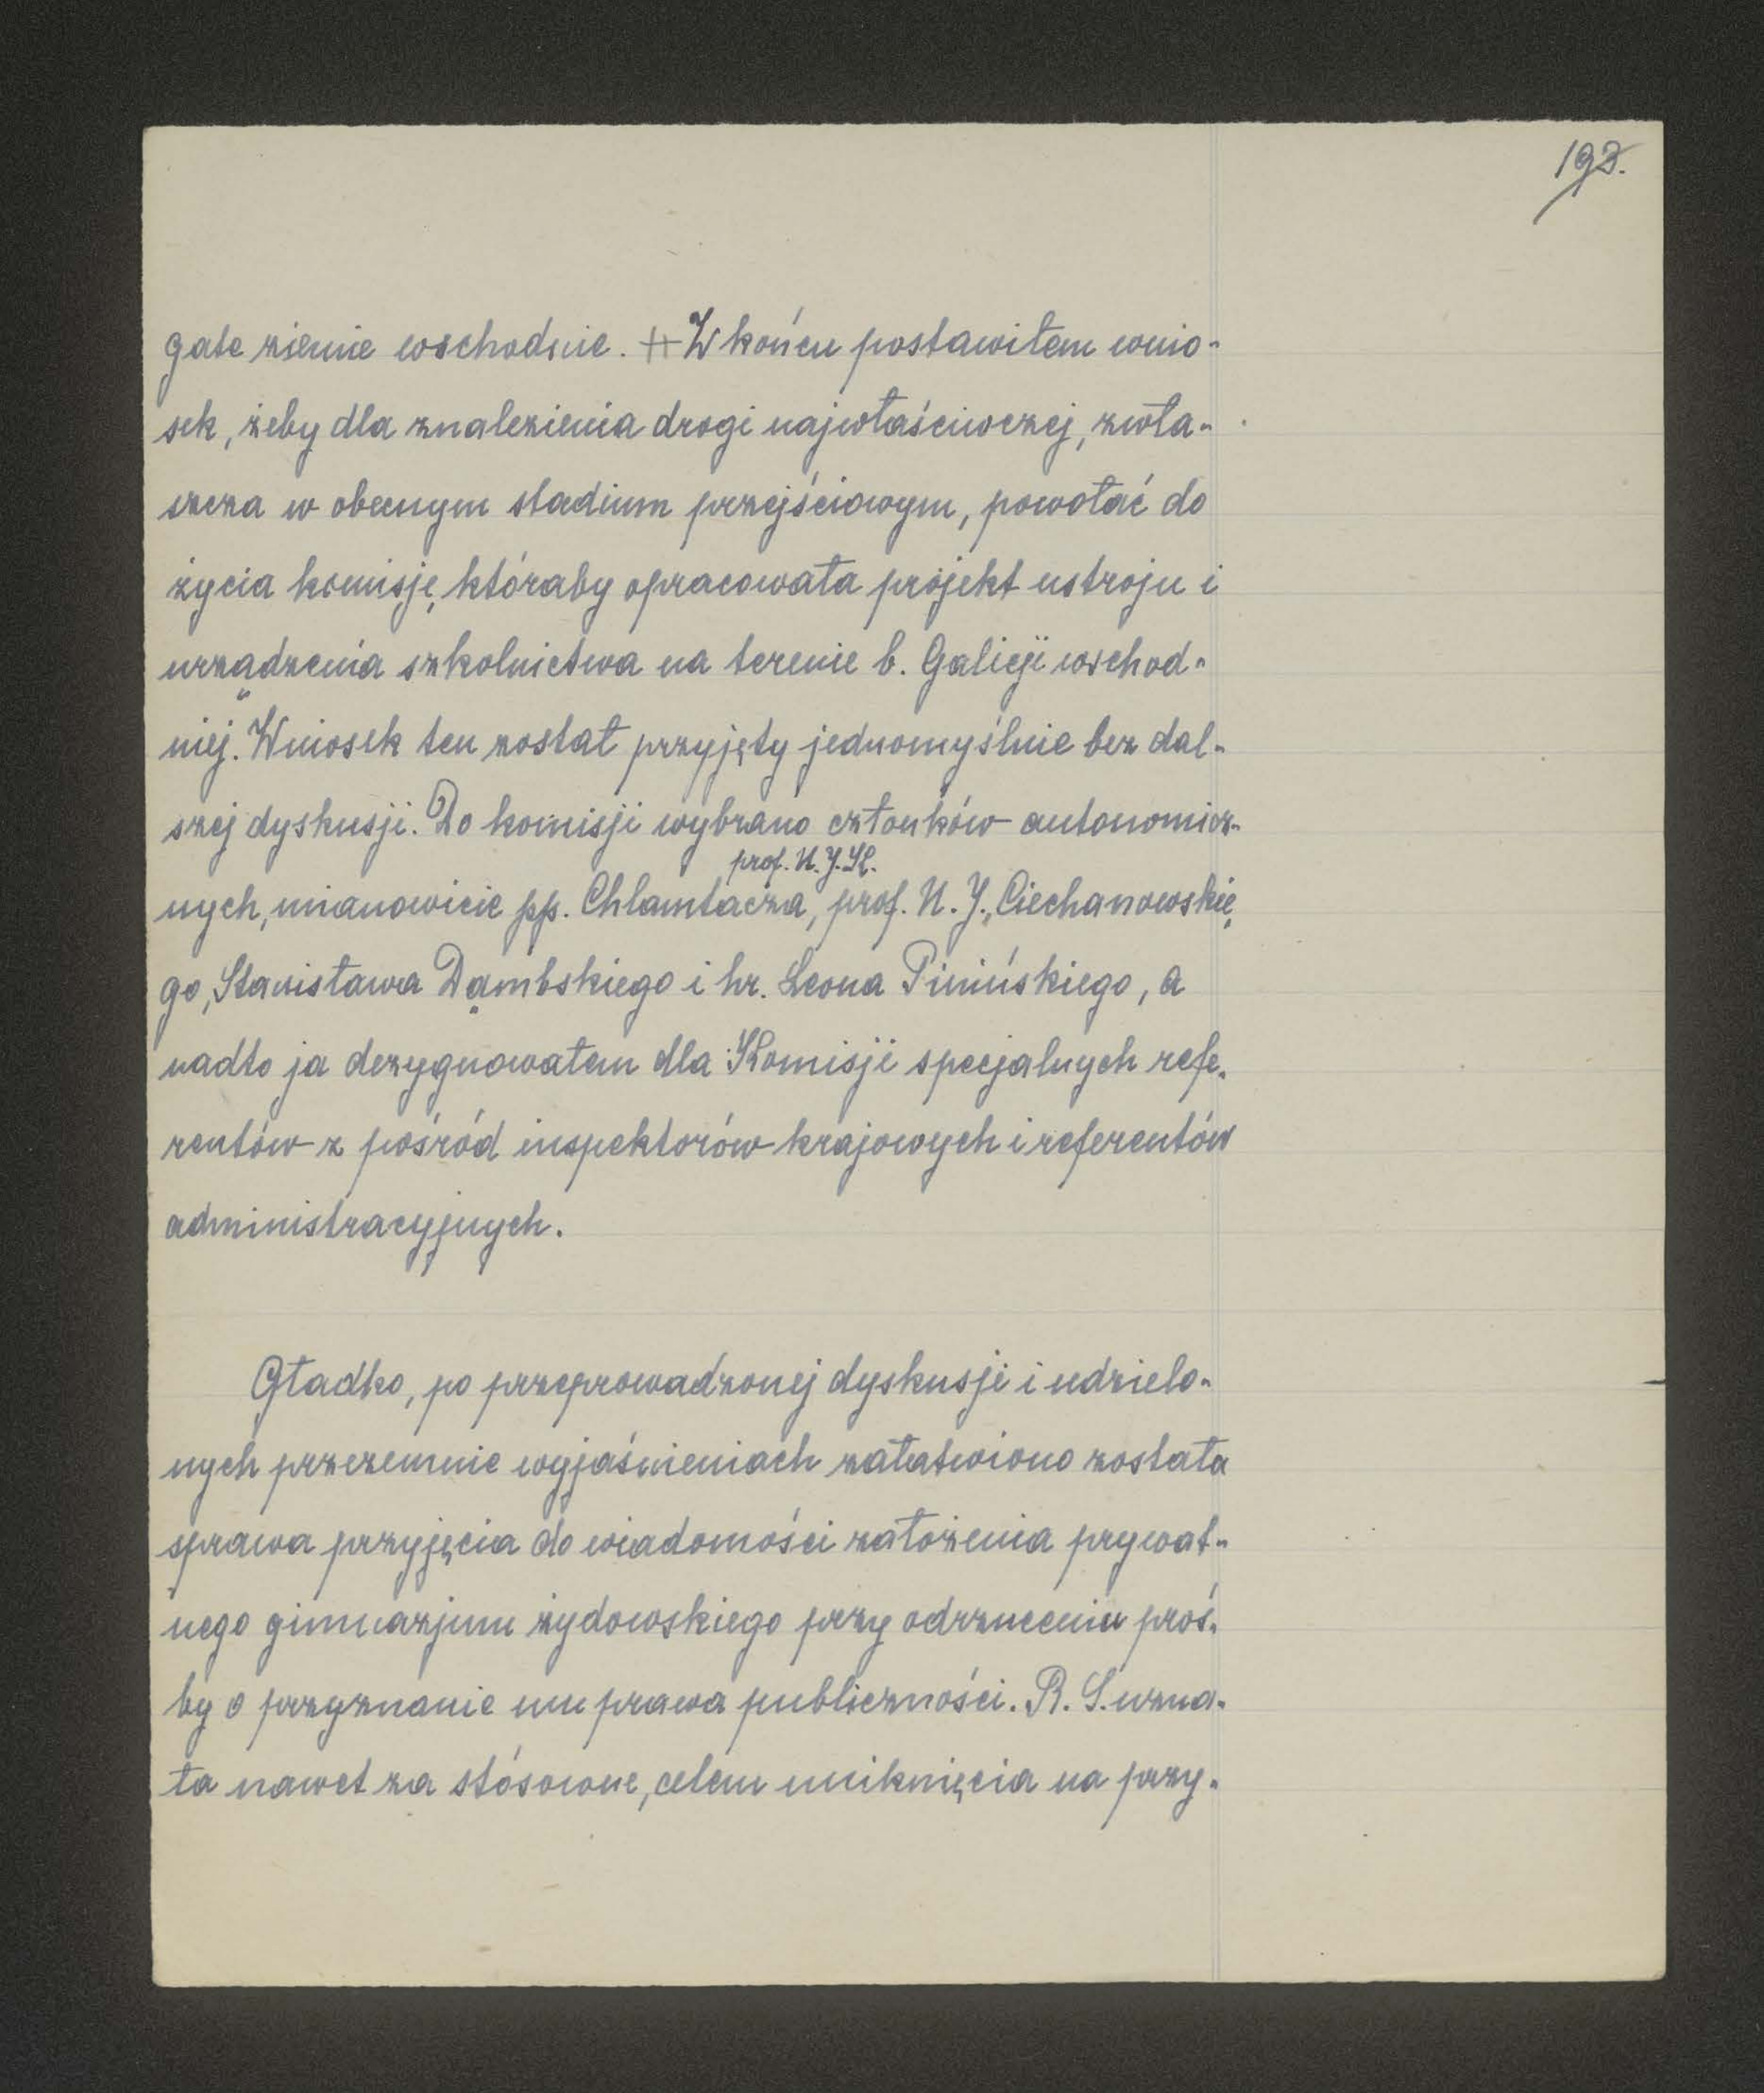 193.
gate ziemie wschodnie. # W końcu postawiłem wnio-
sek, żeby dla znalezienia drogi najwłaściwczej, zwła-
szcza w obecnym stadium przejściowym, powołać do
życia komisję, któraby opracowała projekt ustroju i
urządzenia szkolnictwa na terenie b. Galicji wschod-
niej." Wniosek ten został przyjęty jednomyślnie bez dal-
szej dyskusji. Do komisji wybrano członków autonomicz-
prof. U. J. K.
nych, mianowicie pp. Chlamtacza, prof. U. J., Ciechanowskie
go, Stanisława Dąmbskiego i hr. Leona Pinińskiego, a
nadto ja dezygnowałem dla Komisji specjalnych refe-
rentów z pośród inspektorów krajowych i referentów
administracyjnych.
Gładko, po przeprowadzonej dyskusji i udzielo-
nych przezemnie wyjaśnieniach załatwiono została
sprawa przyjęcia do wiadomości założenia prywat-
nego gimnazjum żydowskiego przy odrzuceniu proś-
by o przyznanie mu prawa publiczności. R. S. uzna-
ła nawet za stósowne, celem uniknięcia na przy-